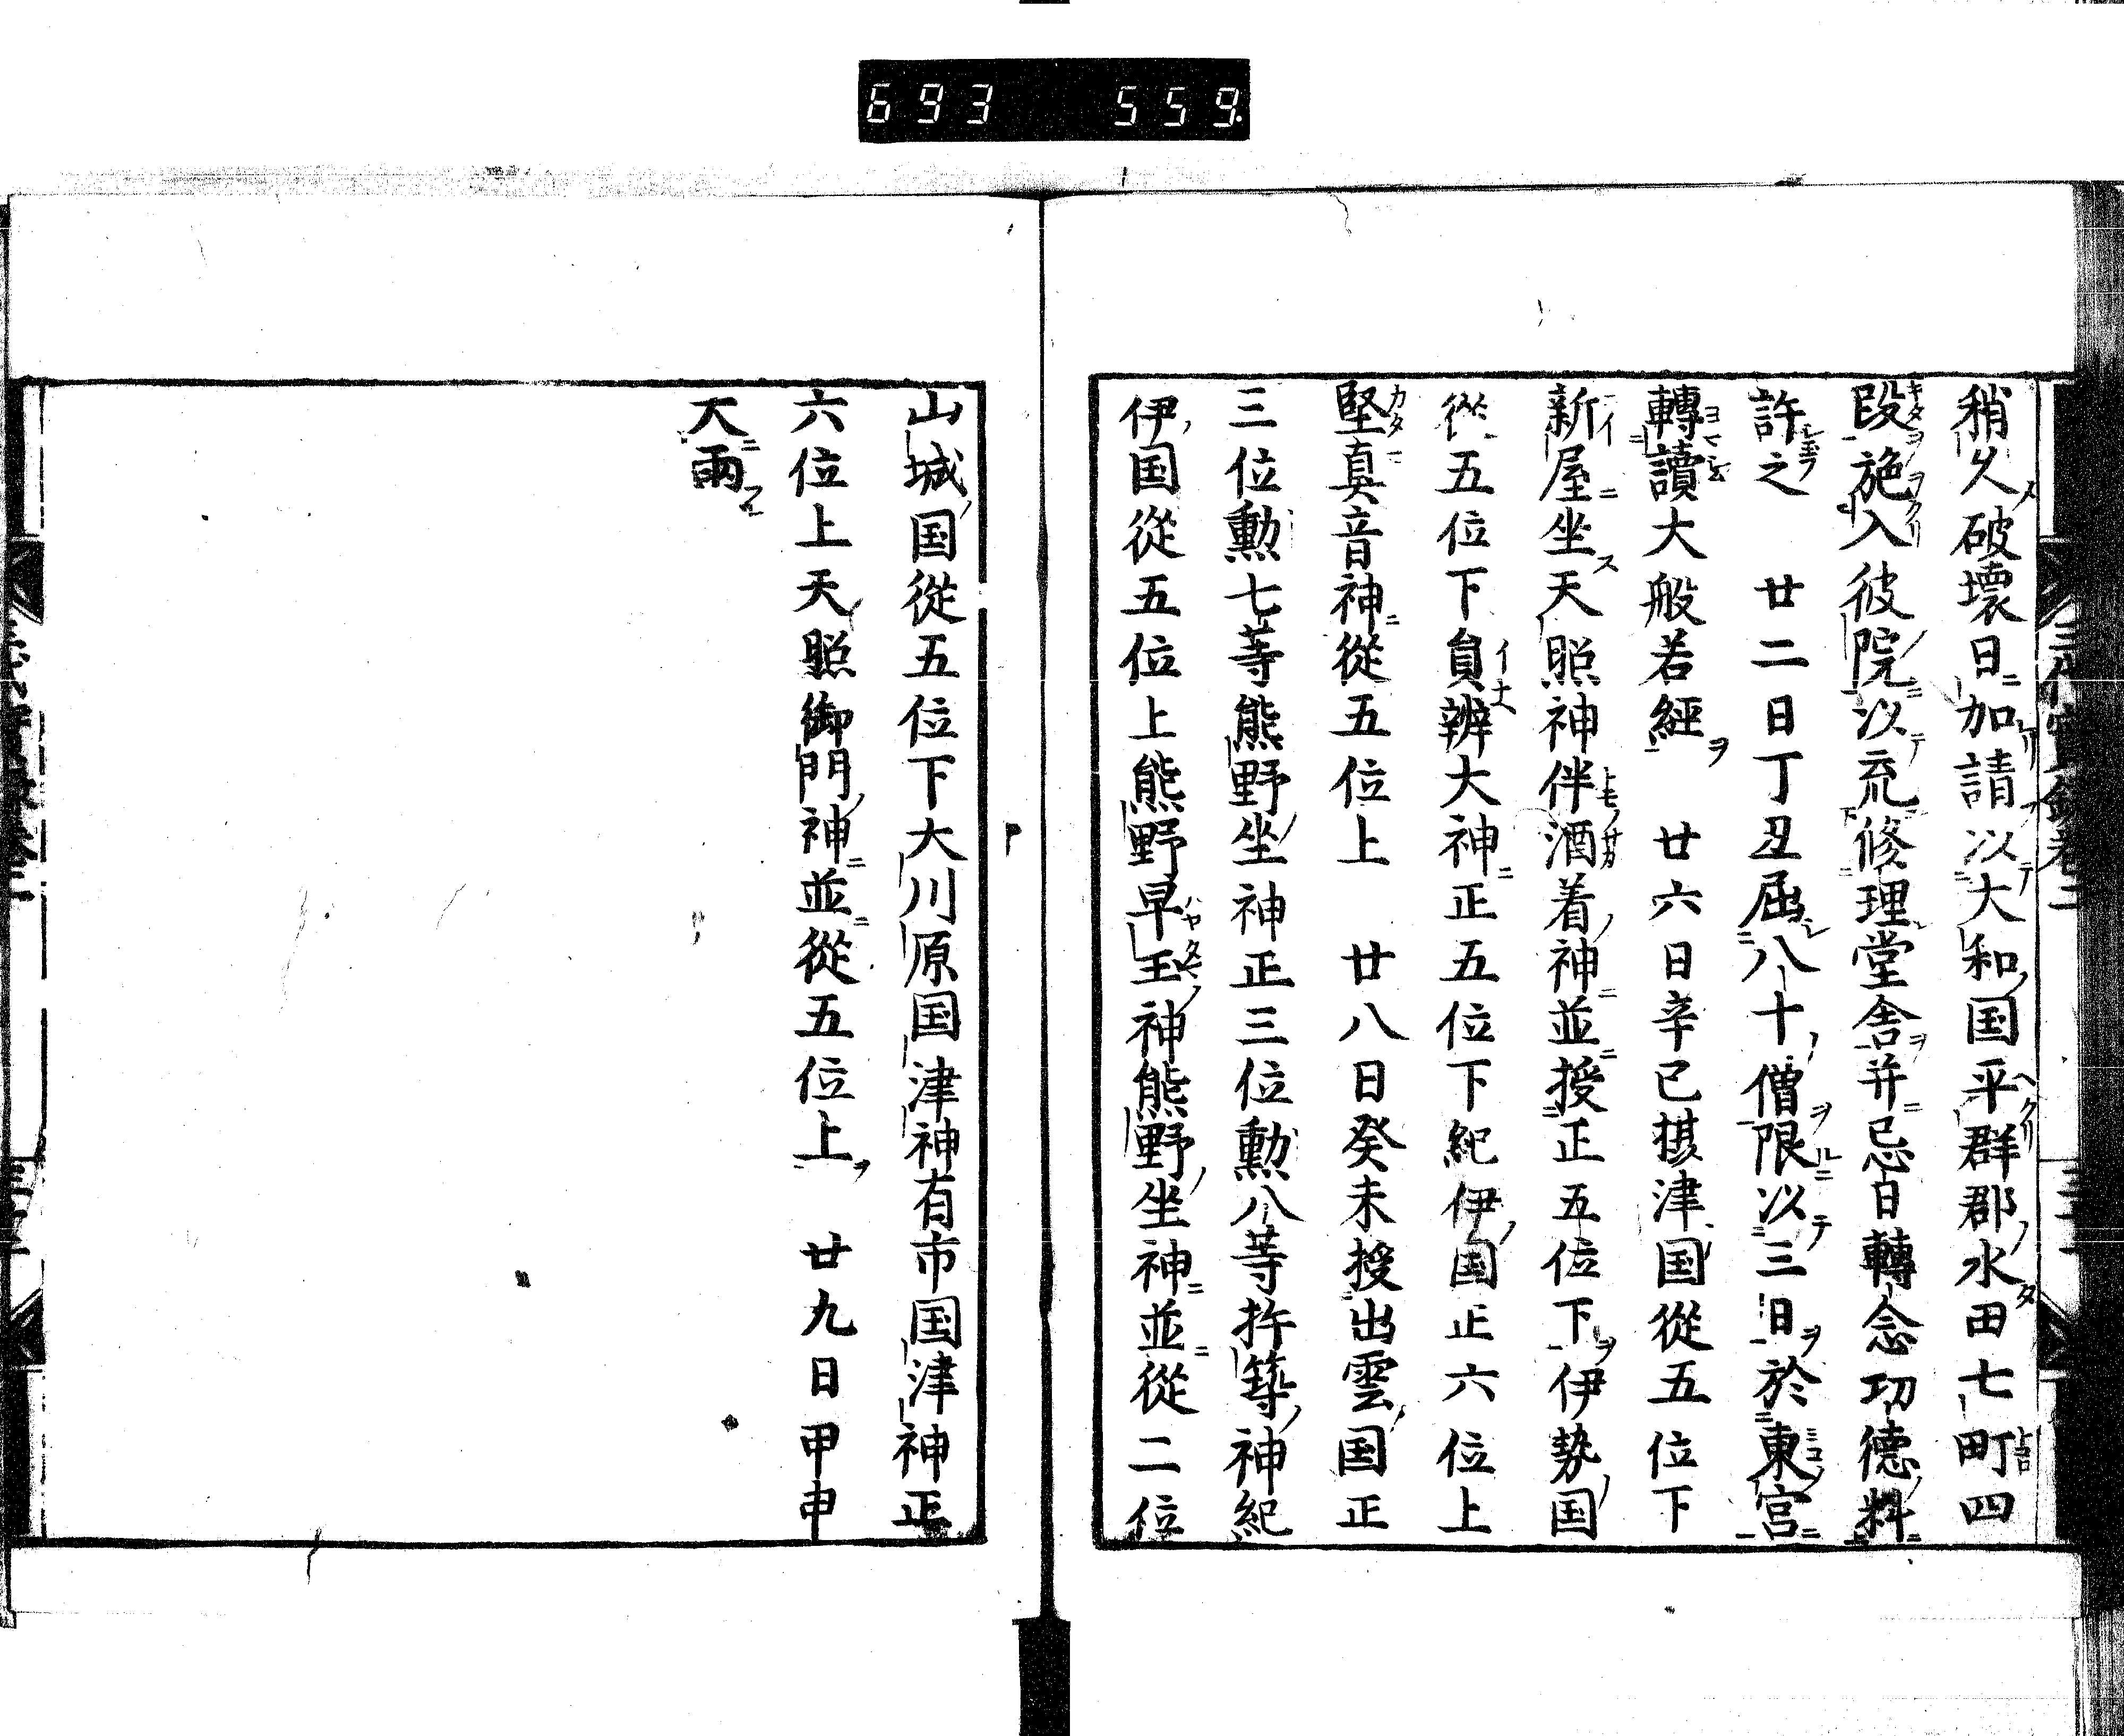 693 559
稍久破壞日加請以大和国平群郡水田七町四
段施入彼院以充修理堂舎并忌日轉念功德料
許之　廿二日丁丑屈八十僧限以三日於東宮
轉讀大般若經　廿六日辛巳摂津国從五位下
新屋坐天照神伴酒着神並授正五位下伊勢国
從五位下員辨大神正五位下紀伊国正六位上
堅真音神從五位上　廿八日癸未授出雲国正
三位勲七等熊野坐神正三位勲八等杵築神紀
伊国從五位上熊野早玉神熊野坐神並從二位
山城国從五位下大川原国津神有市国津神正
六位上天照御門神並從五位上　廿九日甲申
大雨